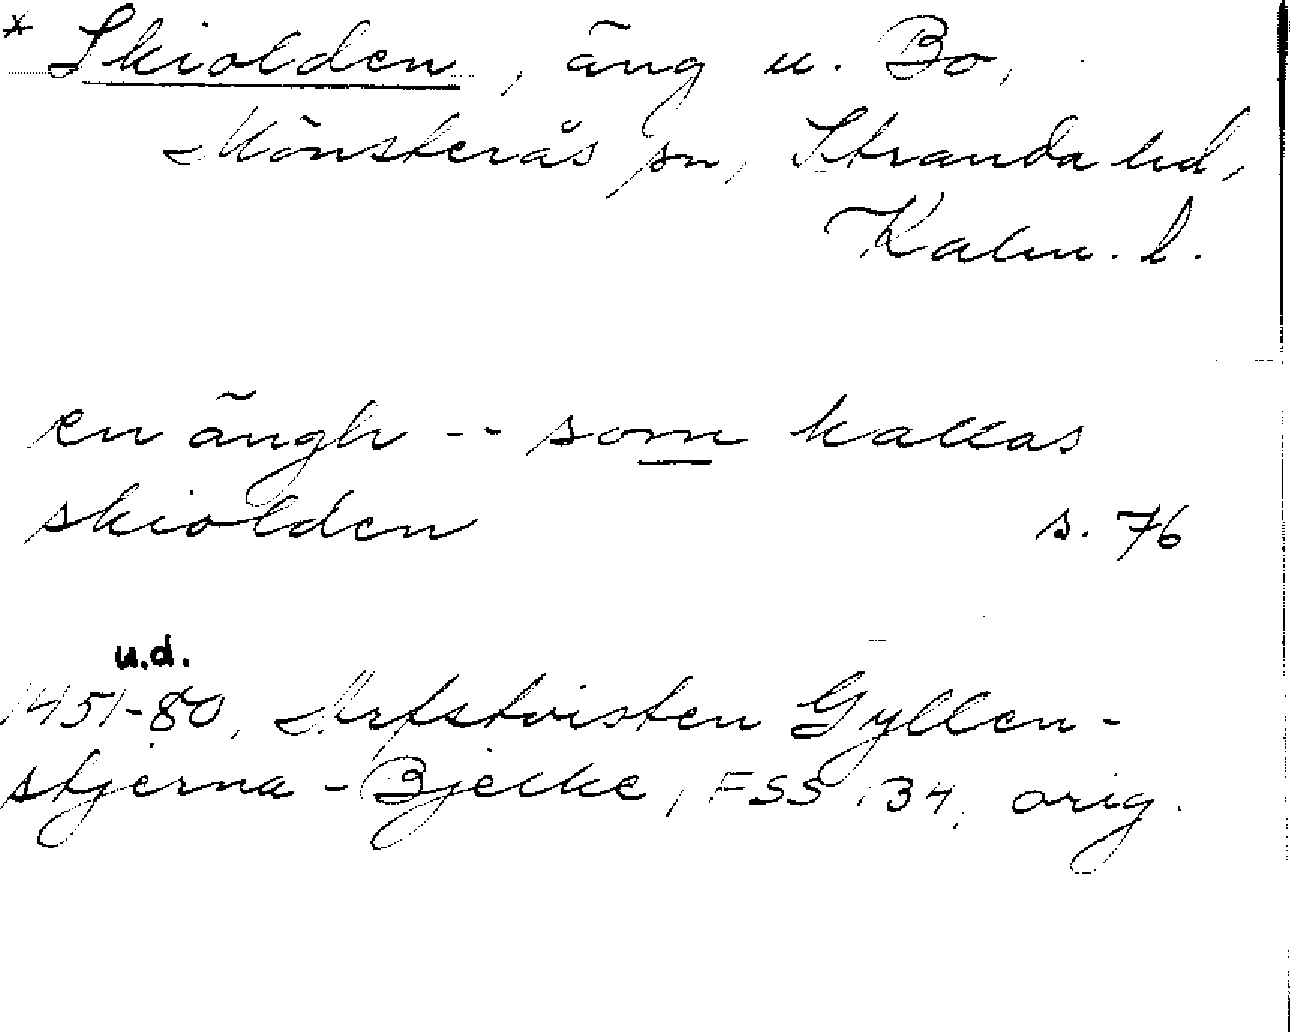 * Skiolden, äng u. Bo,
Mönsterås sn, Stranda hd,
Kalm. l.
en ängh -- som kallas
skiolden s. 76
u.d.
1451-80, Arfstvisten Gyllen-
stjerna - Bjelke, FSS 34, orig.